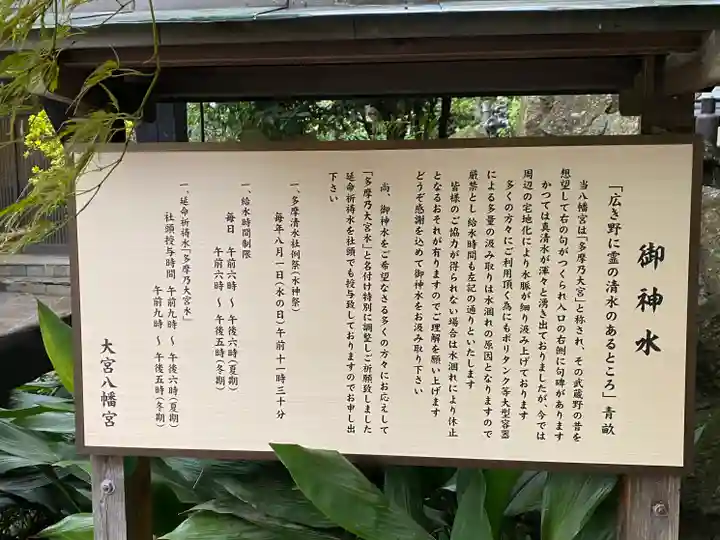 御神水
「広き野に霊の清水のあるところ」青畝
当八幡宮は「多摩乃大宮」と称され、その武蔵野の昔を
想望して右の句がつくられ入口の右側に句碑があります
かつては真清水が渾々と湧き出ておりましたが、今では
周辺の宅地化により水脈が細り汲み上げております
多くの方々にご利用頂く為にもポリタンク等大型容器
による多量の汲み取りは水涸れの原因となりますので
厳禁とし給水時間も左記の通りといたします
皆様のご協力が得られない場合は水涸れにより休止
となるおそれが有りますのでご理解を願い上げます
どうぞ感謝を込めて御神水をお汲み取り下さい
尚、御神水をご希望なさる多くの方々にお応えして
「多摩乃大宮水」と名付け特別に調整しご祈願致しました
延命祈祷水を社頭でも授与致しておりますのでお申し出
下さい
一、多摩清水社例祭(水神祭)
毎年八月一日(水の日)午前十一時三十分
一、給水時間制限
毎日 午前六時 〜 午後六時(夏期)
午前六時 〜 午後五時(冬期)
一、延命祈祷水「多摩乃大宮水」
社頭授与時間 午前九時 〜 午後六時(夏期)
午前九時 〜 午後五時(冬期)
大宮八幡宮